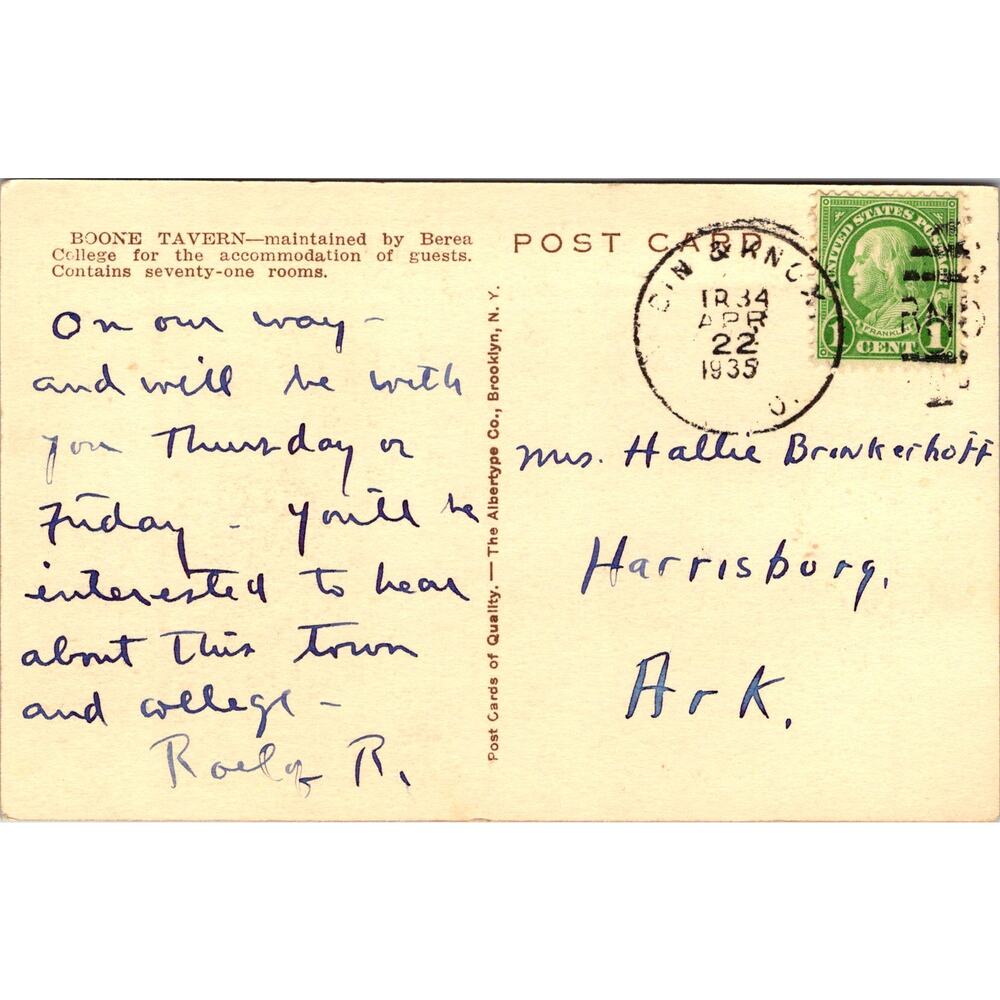 BOONE TAVERN—maintained by Berea
College for the accommodation of guests.
Contains seventy-one rooms.
On our way –
and will be with
you Thursday or
Friday – You'll be
interested to hear
about this town
and college –
R.
Post Cards of Quality. — The Albertype Co., Brooklyn, N. Y.
POST CARD
CIN & KNOX
TR 34
APR
22
1935
O.
UNITED STATES
FRANKLIN
1 CENT 1
Mrs. Hallie Brinkerhoff
Harrisburg,
Ark.